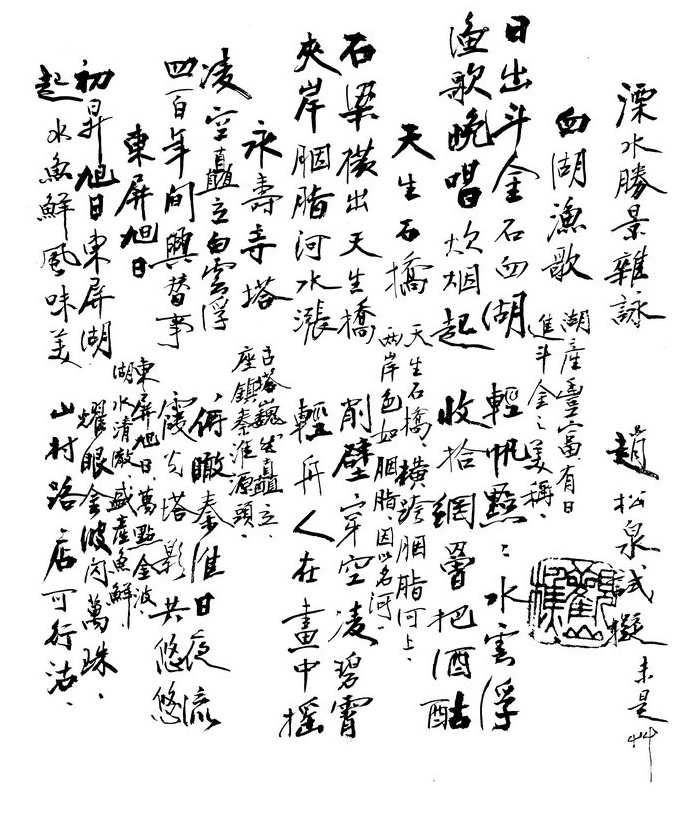 溧水勝景雜詠 趙松泉試擬 未是艸
血湖漁歌 湖產豐富有日
進斗金之美稱.
日出斗金石血湖 輕帆點:水雲浮
漁歌晚唱炊烟起 收拾網罾把酒酤
天生石橋 天生石橋、橫跨胭脂河上.
兩岸色如胭脂、因以名河.
石梁橫出天生橋 削壁穿空凌碧霄
夾岸胭脂河水漲 輕舟人在畫中搖
永壽寺塔 古塔巍然矗立.
座鎮秦淮源頭.
凌空矗立白雲浮 俯瞰秦淮日夜流
四百年間興替事 霞光塔影共悠悠
東屏旭日 東屏旭日、萬點金波
湖水清澈、盛產魚鮮.
初昇旭日東屏湖 耀眼金波閃萬珠.
起水魚鮮風味美 山村路店可行沽.